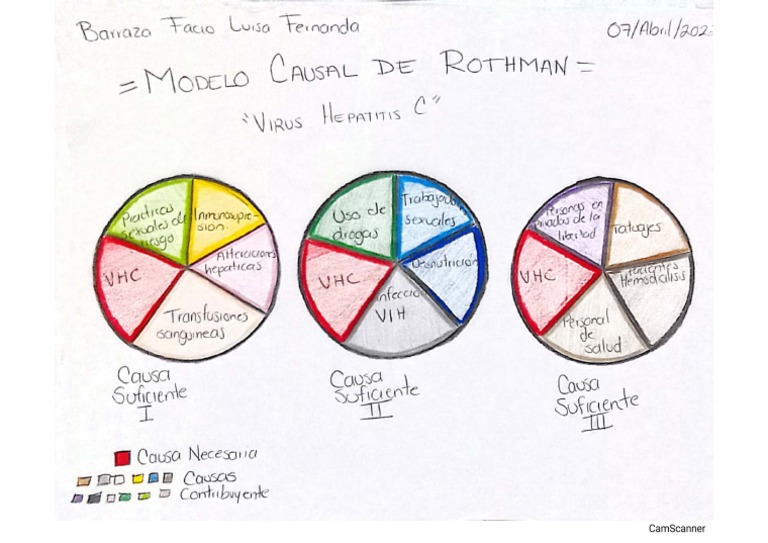 Barraza Facio Luisa Fernanda
07/Abril/202
=MODELO CAUSAL DE ROTHMAN=
"VIRUS HEPATITIS C"
Practicas
sexuales de
riesgo
Inmunosupre-
sion.
Alteraciones
hepaticas
Transfusiones
sanguineas
VHC
Uso de
drogas
Trabajadores
sexuales
Desnutricion
Infeccion
VIH
VHC
Personas en
privadas de la
libertad
Tatuajes
Pacientes
Hemodialisis
Personal
de
salud
VHC
Causa
Suficiente
I
Causa
Suficiente
II
Causa
Suficiente
III
Causa Necesaria
Causas
Contribuyente
CamScanner